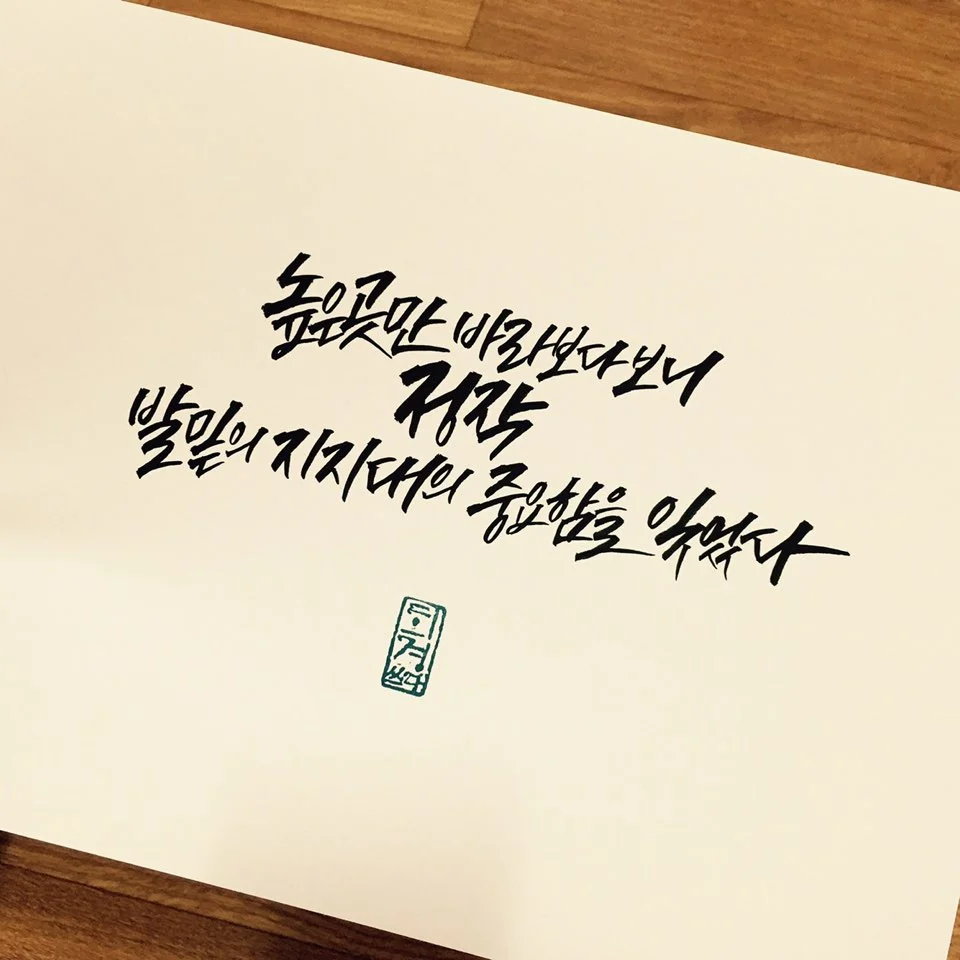 높은곳만 바라보다보니
정작
발밑의 지지대의 중요함을 잊었다
경
쓰다